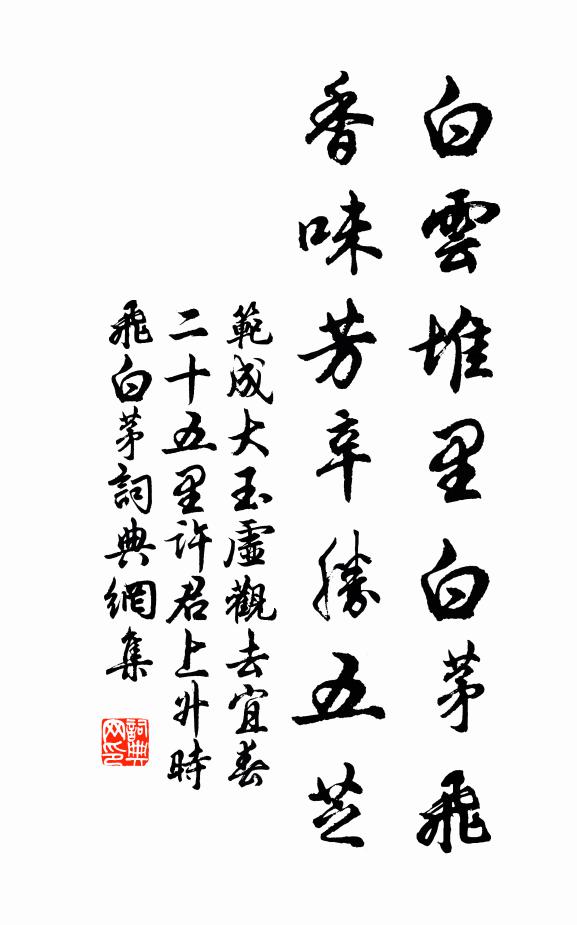 白雲堆里白茅飛
香味芳辛勝五芝
範成大玉虛觀去宜春
二十五里許君上升時
飛白茅詞典網集
詞典網印